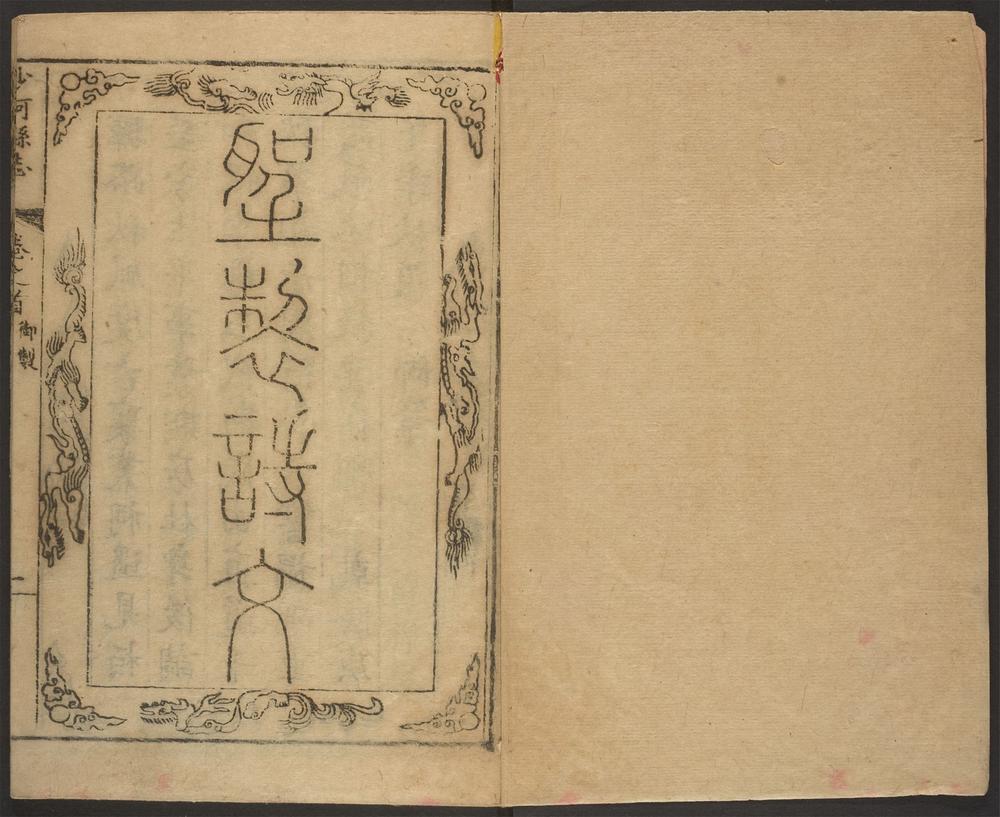 聖製詩文
沙河縣志
卷之首
御製